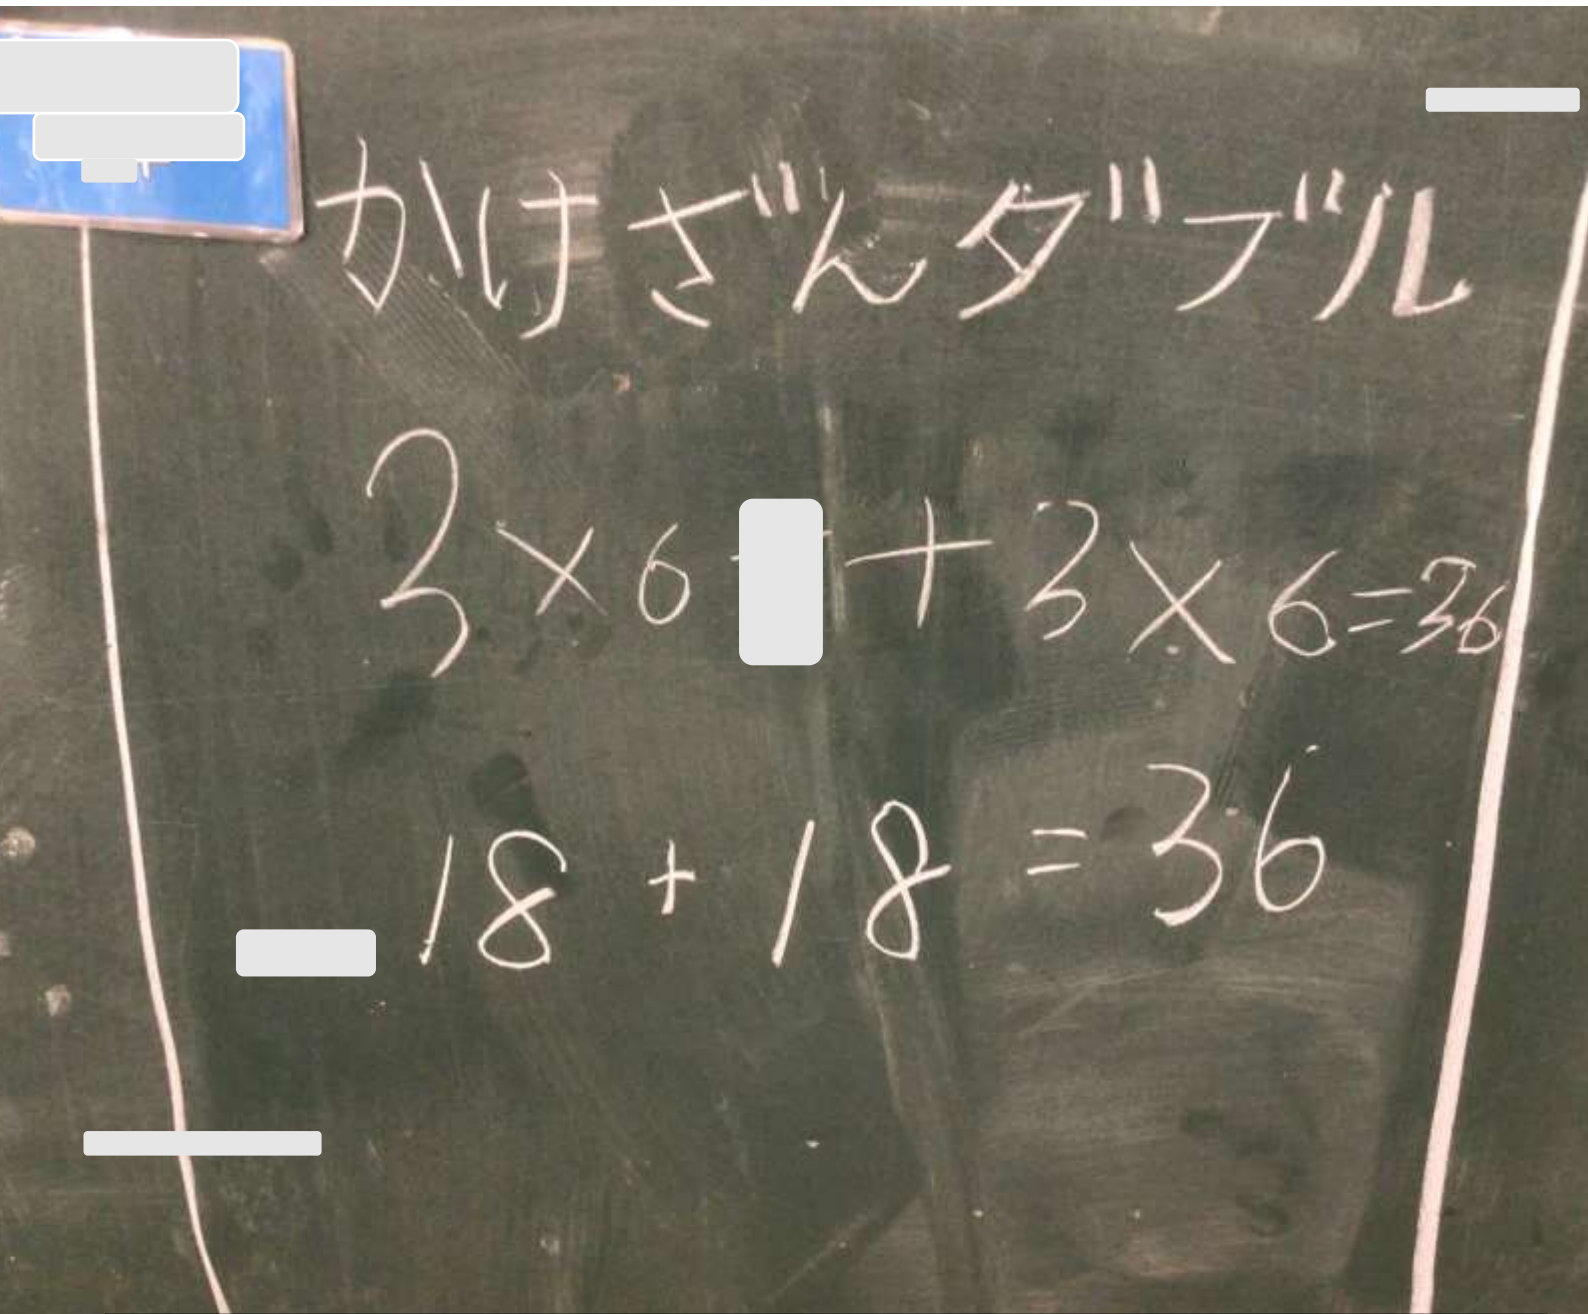 かけざんダブル
3×6 + 3×6=36
18+18=36